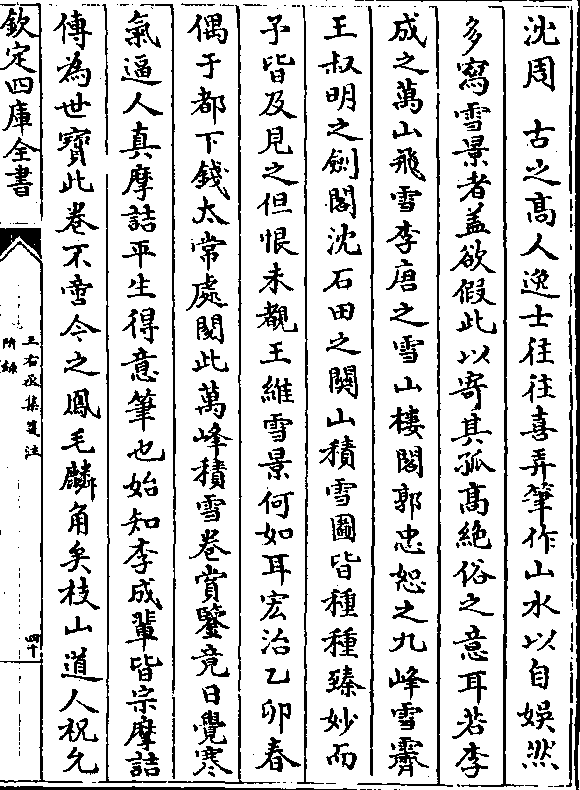 沈周　古之髙人逸士往往喜弄筆作山水以自娛然
多寫雪景者盖欲假此以寄其孤髙絶俗之意耳若李
成之萬山飛雪李唐之雪山樓閣郭忠恕之九峰雪霽
王叔明之劍閣沈石田之闗山積雪圖皆種種臻妙而
予皆及見之但恨未覩王維雪景何如耳宏治乙卯春
偶于都下錢太常處閱此萬峰積雪卷賞鑒竟日覺寒
氣逼人真摩詰平生得意筆也始知李成輩皆宗摩詰
傳為世寶此卷不啻今之鳳毛麟角矣枝山道人祝允
欽定四庫全書
王右丞集箋注
附録
四十